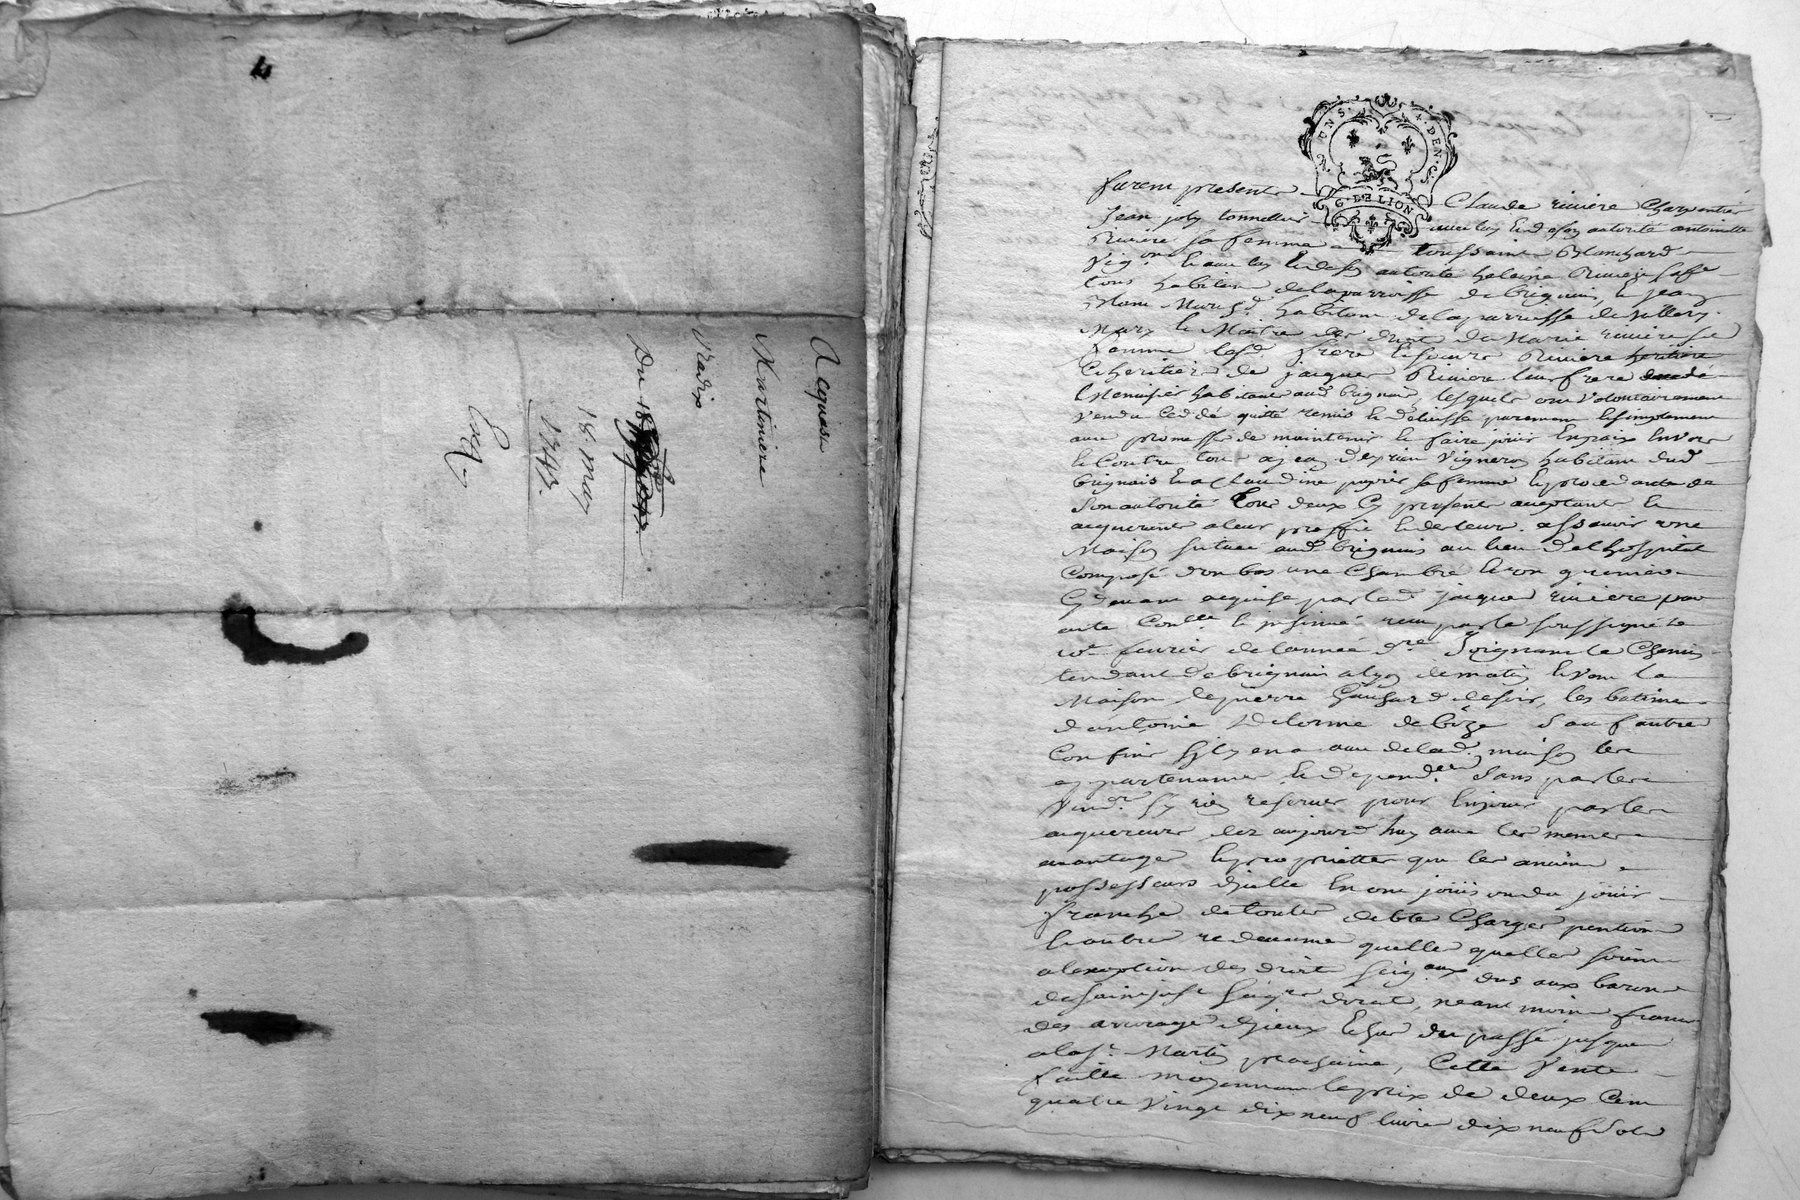 Acquest
Martiniere
Du 18
18. may
1748.
N. UNS. 4. DEN. S.
G. DE LION
furent presents Claude riviere Charpentier
Jean joly tonnellier avec luy & de son autorité antoinette
Riviere sa femme toussaint Blanchard
Vig.on & avec luy & de son autorité helaine Riviere sa ffe
tous habitans de la parroisse de brignais, & jean
habitant de la parroisse de Millery
Mary & Maitre des droits de Marie riviere sa
femme lesd. frere & soeurs Riviere heritiere
Cheritiers de jacques Riviere leur frere
Menuisier habitant aud. brignais, lesquels ont volontairement
vendu ceddé quitté remis & delaissé purement & simplement
avec promesse de maintenir & faire jouir en paix envers
& contre tous a jean vigneron habitant dud.
brignais & a Claudine sa femme procedante de
son autorité tous deux cy presents acceptants &
acquerants a leur proffit & des leurs. assavoir une
Maison situeé aud. brignais au lieu de lhospital
Composé d'un bas une Chambre & un grenier
Cy devant acquise par led. jacques riviere par
acte Conllé & insinué receu par le soussigné le
fevrier de l'année d.re joignant le Chemin
tendant de brignais a lyon de matin & vent la
Maison de pierre de soir, les batimens
d'antoine delorme de bize sauf autres
Confins sy y en a avec de lad. maison les
appartenances & depend.ces sans par les
vend.rs sy rien reserver pour en jouir par les
acquereurs dez aujourd'huy avec les memes
avantages & proprietter que les anciens
possesseurs d'icelle en ont jouis ou du jouir
franche de toutes debte Charges pentions
& autre redevances quelles quelles soient
a l'exception des droits seig.aux dus aux barons
de saint just seig.rs direct, neant moins francs
des arrerages d'iceux & har du passé jusque
a la St. Martin prochaine, Cette Vente
faitte moyennant le prix de deux Cent
quatre vingt dix neuf livres dix neuf sols